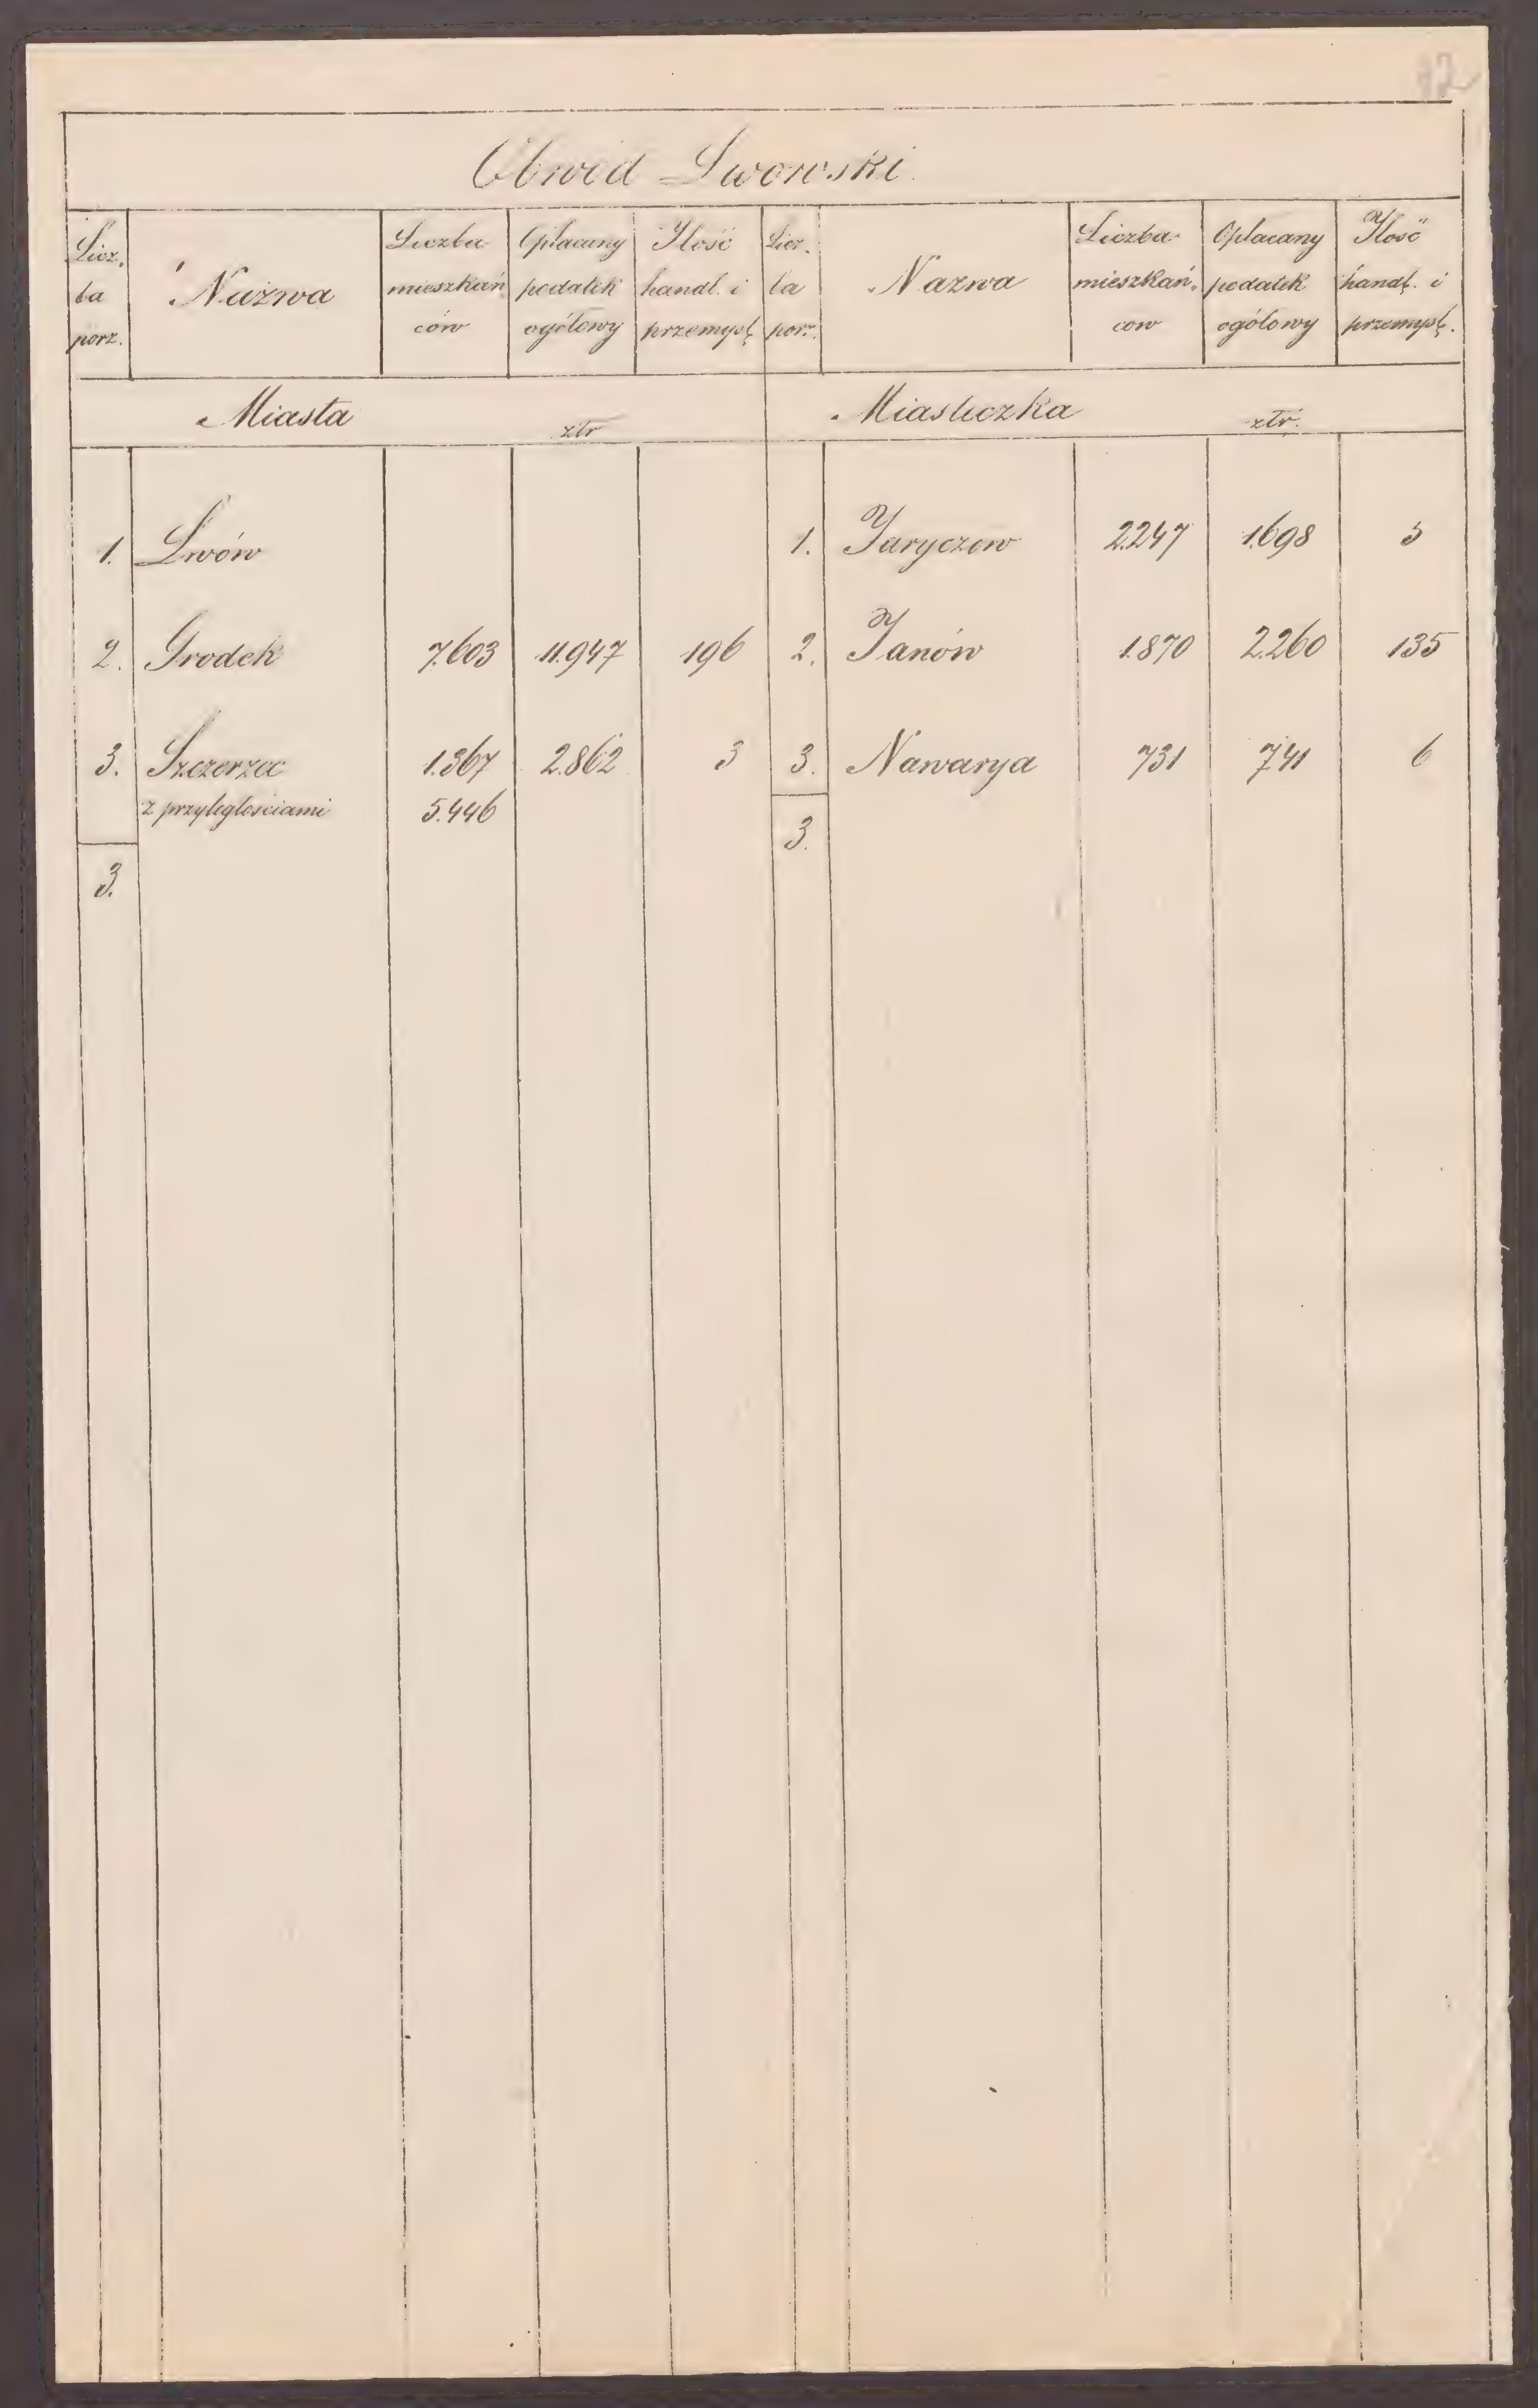 12
Obwód Lwowski.
Licz. ba porz. Nazwa Liczba mieszkań ców Opłacany podatek ogółowy Ilość handl. i przemysł. Licz. ba porz. Nazwa Liczba mieszkań. cow Opłacany podatek ogółowy Ilość handl. i przemysł.
Miasta złr Miasteczka złr.
1. Lwów 1. Jaryczow 2.247 1.698 5
2. Grodek 7.603 11.947 196 2. Janów 1.870 2.260 135
3. Szczerzec 1.367 2.862 3 3. Nawarya 731 741 6
z przyległościami 5.446
3. 3.